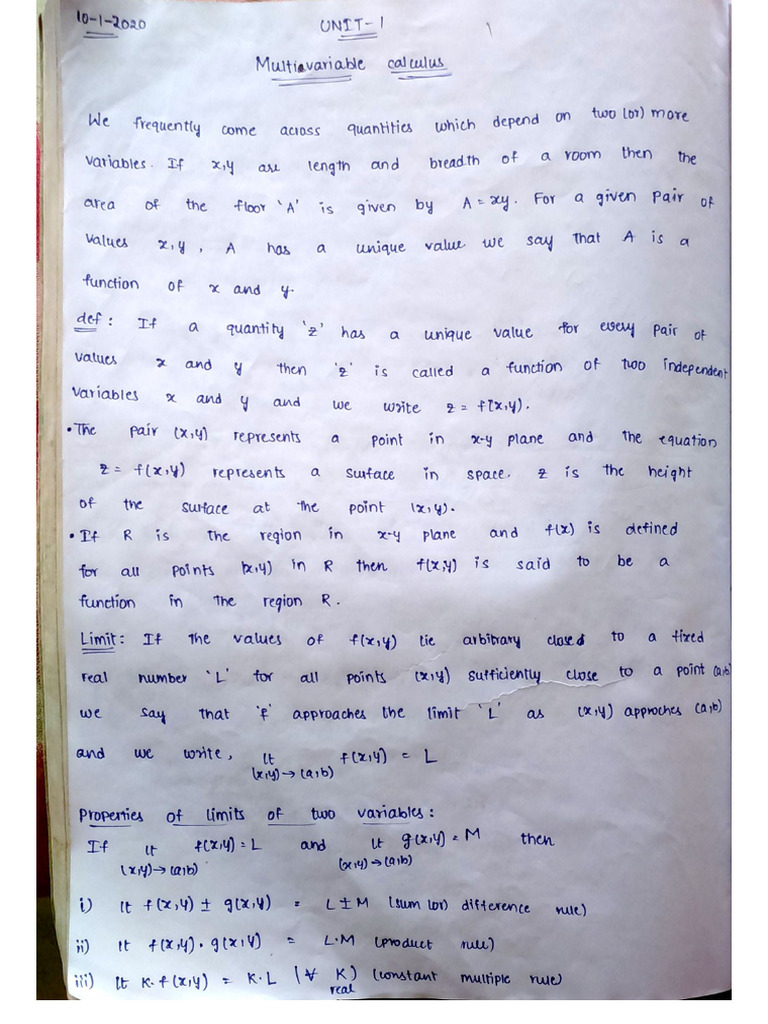 10-1-2020 UNIT-1 1
Multivariable calculus
We frequently come across quantities which depend on two (or) more
variables. If x,y are length and breadth of a room then the
area of the floor 'A' is given by A = xy. For a given pair of
values x,y, A has a unique value we say that A is a
function of x and y.
def: If a quantity 'z' has a unique value for every pair of
values x and y then 'z' is called a function of two independent
variables x and y and we write z = f(x,y).
• The pair (x,y) represents a point in x-y plane and the equation
z = f(x,y) represents a surface in space. z is the height
of the surface at the point (x,y).
• If R is the region in x-y plane and f(x) is defined
for all points (x,y) in R then f(x,y) is said to be a
function in the region R.
Limit: If the values of f(x,y) lie arbitrary closed to a fixed
real number 'L' for all points (x,y) sufficiently close to a point (a,b)
we say that 'f' approaches the limit 'L' as (x,y) approches (a,b)
and we write, lt f(x,y) = L
(x,y)→(a,b)
Properties of limits of two variables:
If lt f(x,y) = L and lt g(x,y) = M then
(x,y)→(a,b) (x,y)→(a,b)
i) lt f(x,y) ± g(x,y) = L±M (sum (or) difference rule)
ii) lt f(x,y)·g(x,y) = L·M (product rule)
iii) lt K·f(x,y) = K·L (∀ K) (constant multiple rule)
real